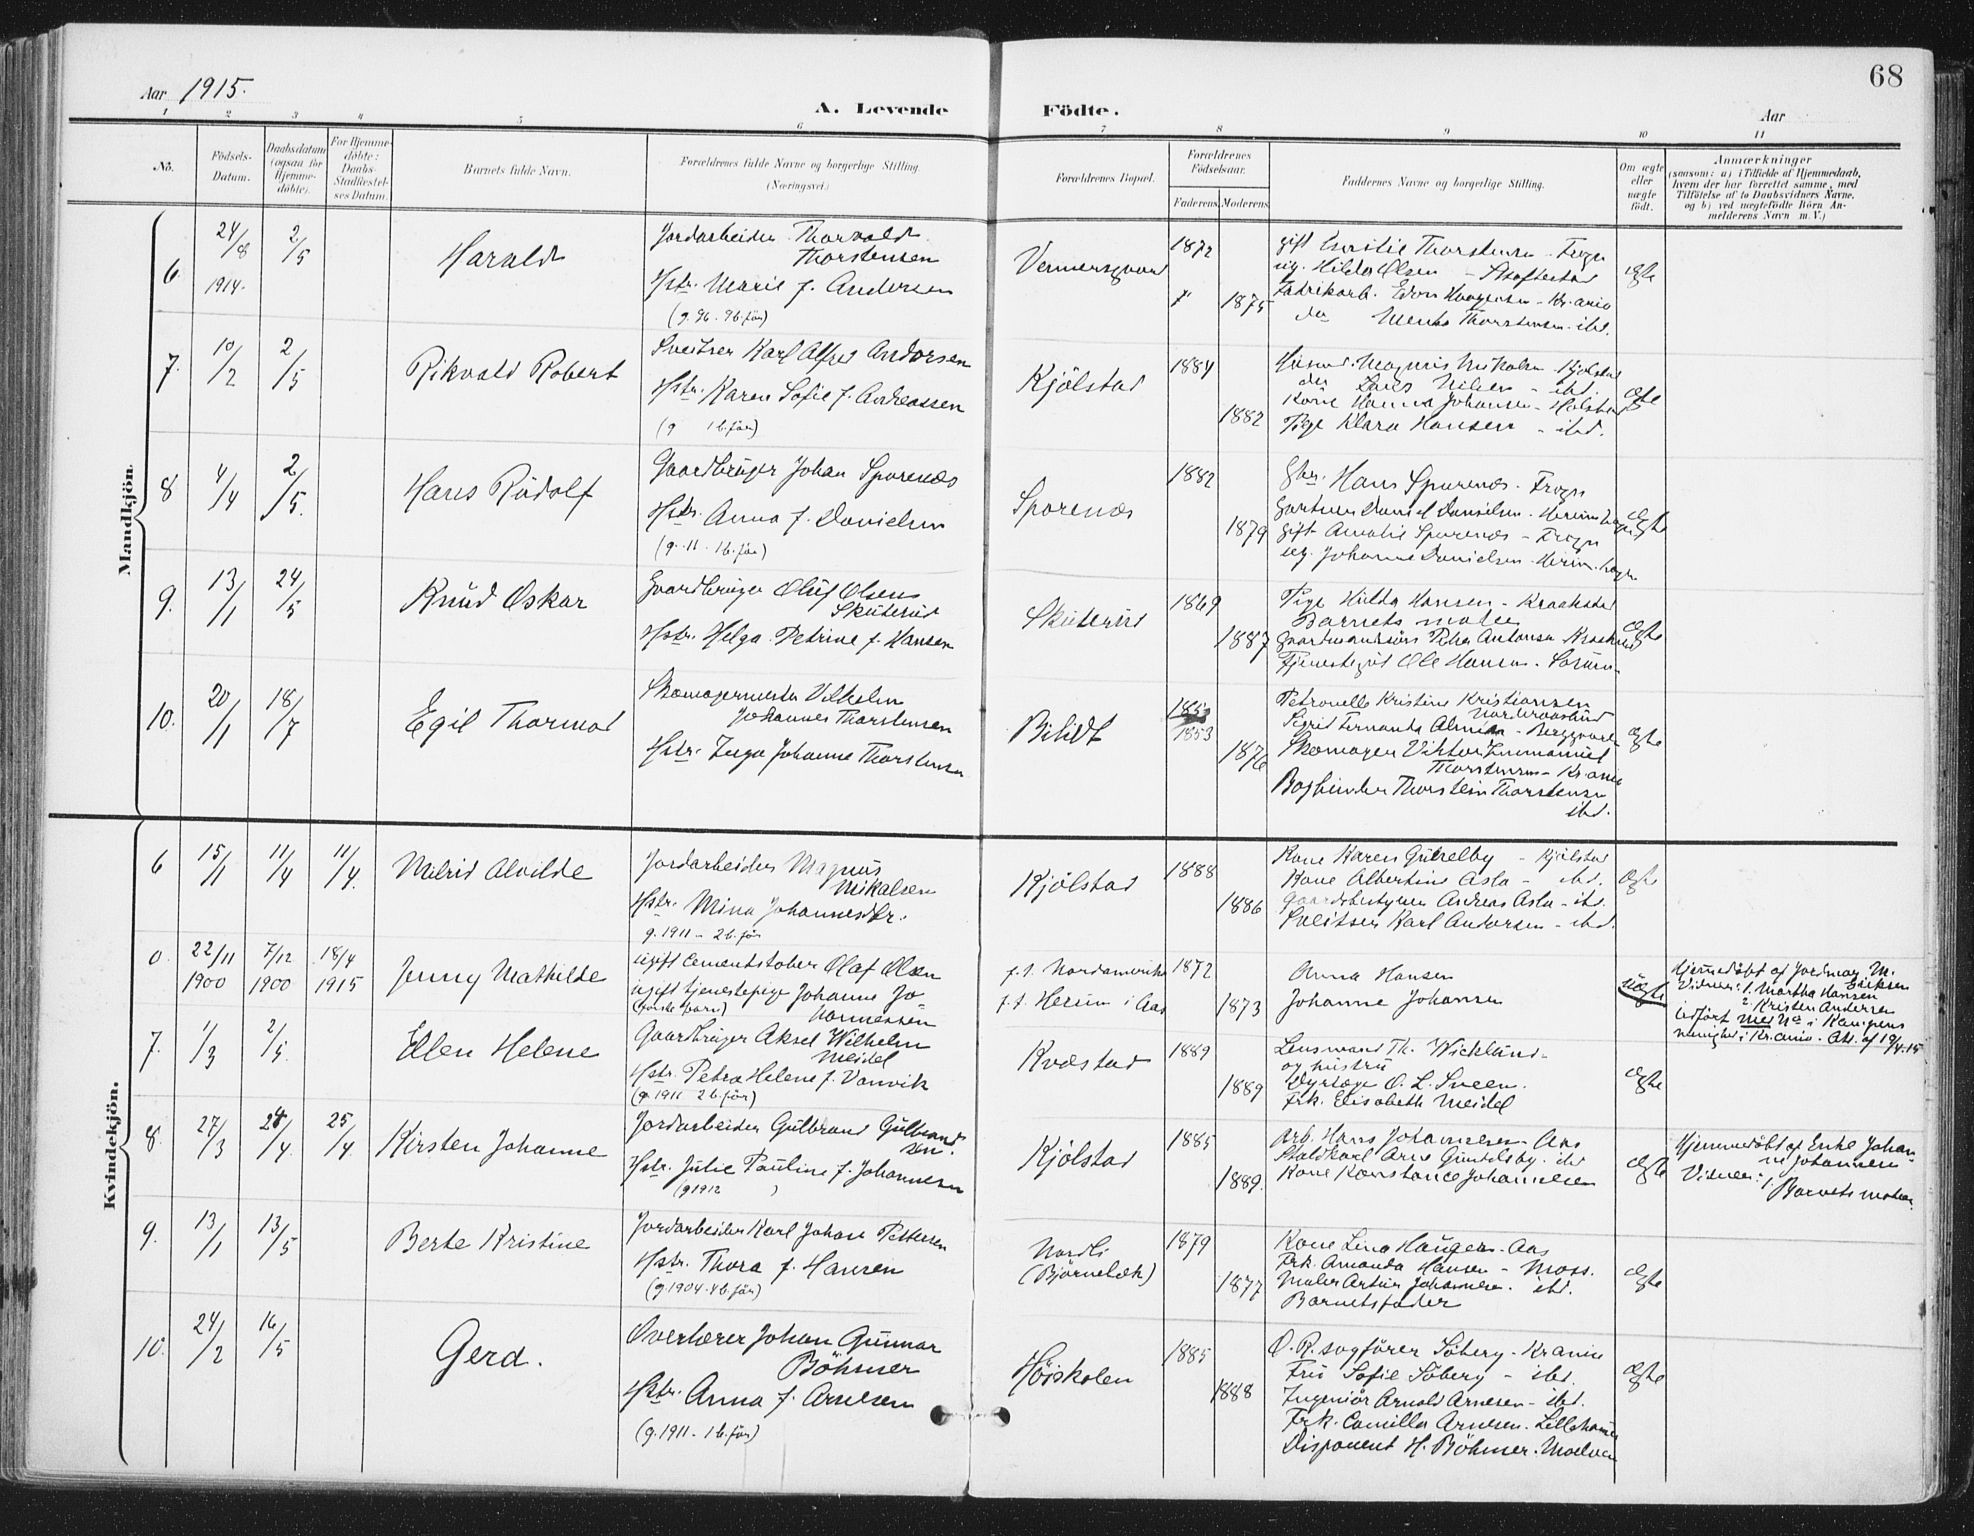 68
Aar 1915.
A. Levende Födte.
Aar
1 2 3 4 5 6 7 8 9 10 11
No.
Födsels-
Datum.
Daabsdatum
(ogsaa for
Hjemme-
döbte).
For Hjemme-
döbte:
Daabs-
Stadfæstel-
ses Datum.
Barnets fulde Navn.
Forældrenes fulde Navne og borgerlige Stilling.
(Næringsvei.)
Forældrenes Bopæl.
Forældrenes
Födselsaar.
Faderens.
Moderens.
Faddernes Navne og borgerlige Stilling.
Om ægte
eller
uægte
födt.
Anmærkninger
(saasom: a) i Tilfælde af Hjemmedaab,
hvem der har forrettet samme, med
Tilföielse af to Daabsvidners Navne.
og b) ved uægtefödte Börn An-
melderens Navn m. V.)
Mandkjön.
6 24/8 1914. 2/5 Harald
Jordarbeider Thorvald
Thorstensen
Hstr. Marie f. Andersen
1872
1875
gift Emilie Thorstensen - Frogn
ug. Hilda Olsen
Fabrikarb. - Kr.ania
do Thorstensen. ibd.
ægte
7. 10/2 2/5 Rikvald Robert
Sveitser Karl Alfred Andorsen
Hstr. Karen Sofie f. Andreassen
(g 1 b. før)
Kjölstad
1884
1882
Magnus Mikalsen - Kjölstad
do Lars Nilsen - ibd.
Kone Hanna Johansen - Holstad
Pige Klara Hansen - ibd.
ægte
8 4/4 2/5. Hans Rudolf
Gaardbruger Johan Sporenæs
Hstr. Anna f. Danielsen
(g. 11. 1 b. før)
Sporenæs
1882
1879
Gbr. Hans Sporenæs. Frogn
Gartner Daniel Danielsen.
gift Amalie Sporenæs - Frogn
ug. Johanne Danielsen
ægte
9. 13/1 24/5 Knud Oskar
Gaardbruger Oluf Olsen
Skuterud
Hstr. Helga Petrine f. Hansen
Skuterud
1869
1887
Pige Hilda Hansen - Kraakstad
Barnets moder
Gaardmandssøn Peder Antonsen
Tjenestegut Ole Hansen
ægte
10. 20/1 18/7 Egil Thormod
Skomagermester Vilhelm
Johannes Thorstensen
Hstr. Inga Johanne Thorstensen
Bilidt
1853
1876
Petronelle Kristine Kristiansen
Sigrid Fernanda
Skomager Viktor Immanuel
Thorstensen - Kr.ania
Bogbinder Thorstein Thorstensen
ibd.
ægte
Kvindekjön.
6 15/1 11/4 11/4. Milrid Alvilde
Jordarbeider Magnus
Mikalsen
Hstr. Mina Johannesdtr.
g. 1911 - 2 b. før
Kjölstad
1888
1886
Kone Karen - Kjölstad
Kone Albertine Asla - ibd.
Gaardsbestyrer Andreas Asla - ibd.
Sveitser Karl Andorsen - ibd.
ægte
0. 22/11 1900 7/12 1900 18/4 1915 Jenny Mathilde
ugift cementstøber Olaf Olsen
ugift tjenestepige Johanne Jo-
hannessen
f. t. Nordamerika
f. t. Herum i Aas
1872
1873
Anna Hansen
Johanne Johansen
uægte
Hjemmedöbt af Jordmor M.
Eriksen
Vidner: 1. Martha Hansen
2. Kristen Andersen
indført med No i Kampens
menighet i Kr.ania. Att. af 19/4.15
7. 1/3 2/5. Ellen Helene
Gaardbruger Aksel Wilhelm
Meidel
Hstr. Petra Helene f. Vanvik
(g. 1911 2 b. før)
Kvæstad
1889
1889
Lensmand Th. Wicklund -
og hustru
Dyrlæge O. L. Sveen.
Frk. Elisabeth Meidel
ægte
8. 27/3 24/4. 25/4. Kirsten Johanne
Jordarbeider Gulbrand Gulbrand-
sen.
Hstr. Julie Pauline f. Johannesen
(g 1912 )
Kjölstad
1885
1889.
Arb. Hans Johannesen - Aas
Staldkarl Arne . ibd
Kone Konstance Johannesen
ægte
Hjemmedöbt af Enke Johan-
ne Johannesen
Vidner: 1.
Barnets moder.
9. 13/1 13/5 Berte Kristine
Jordarbeider Karl Johan Pettersen
Hstr. Thora f. Hansen
(g. 1904. 4 b. før)
Nordli
(Björnebæk)
1879
1877
Kone Lina Haugen - Aas
Frk. Amanda Hansen - Moss.
Maler Artur Johannesen. ibd.
Barnets fader
ægte
10. 24/2 16/5 Gerd.
Overlærer Johan Gunnar
Böhmer
Hstr. Anna f. Arnesen
(g. 1911 - 1 b. før)
Höiskolen
1885
1888
O. R. sagförer Söberg - Kr.ania
Fru Sofie Söberg - ibd.
Ingeniör Arnold Arnesen - ibd.
Frk. Camilla Arnesen. Lillehammer
Disponent H. Böhmer.
ægte